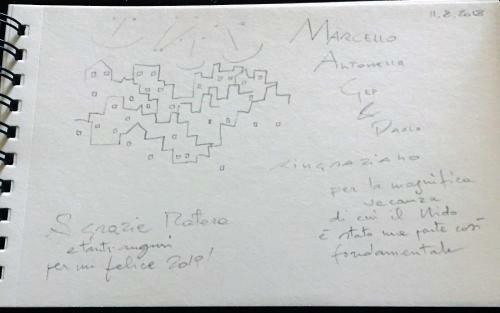 11.8.2018
MARCELLO
Antonella
GEP
&
PAOLO
RINGRAZIANO
per la magnifica
vacanza
di cui il Nido
è stato una parte così
fondamentale
S grazie Matera
e tanti auguri
per un felice 2019!